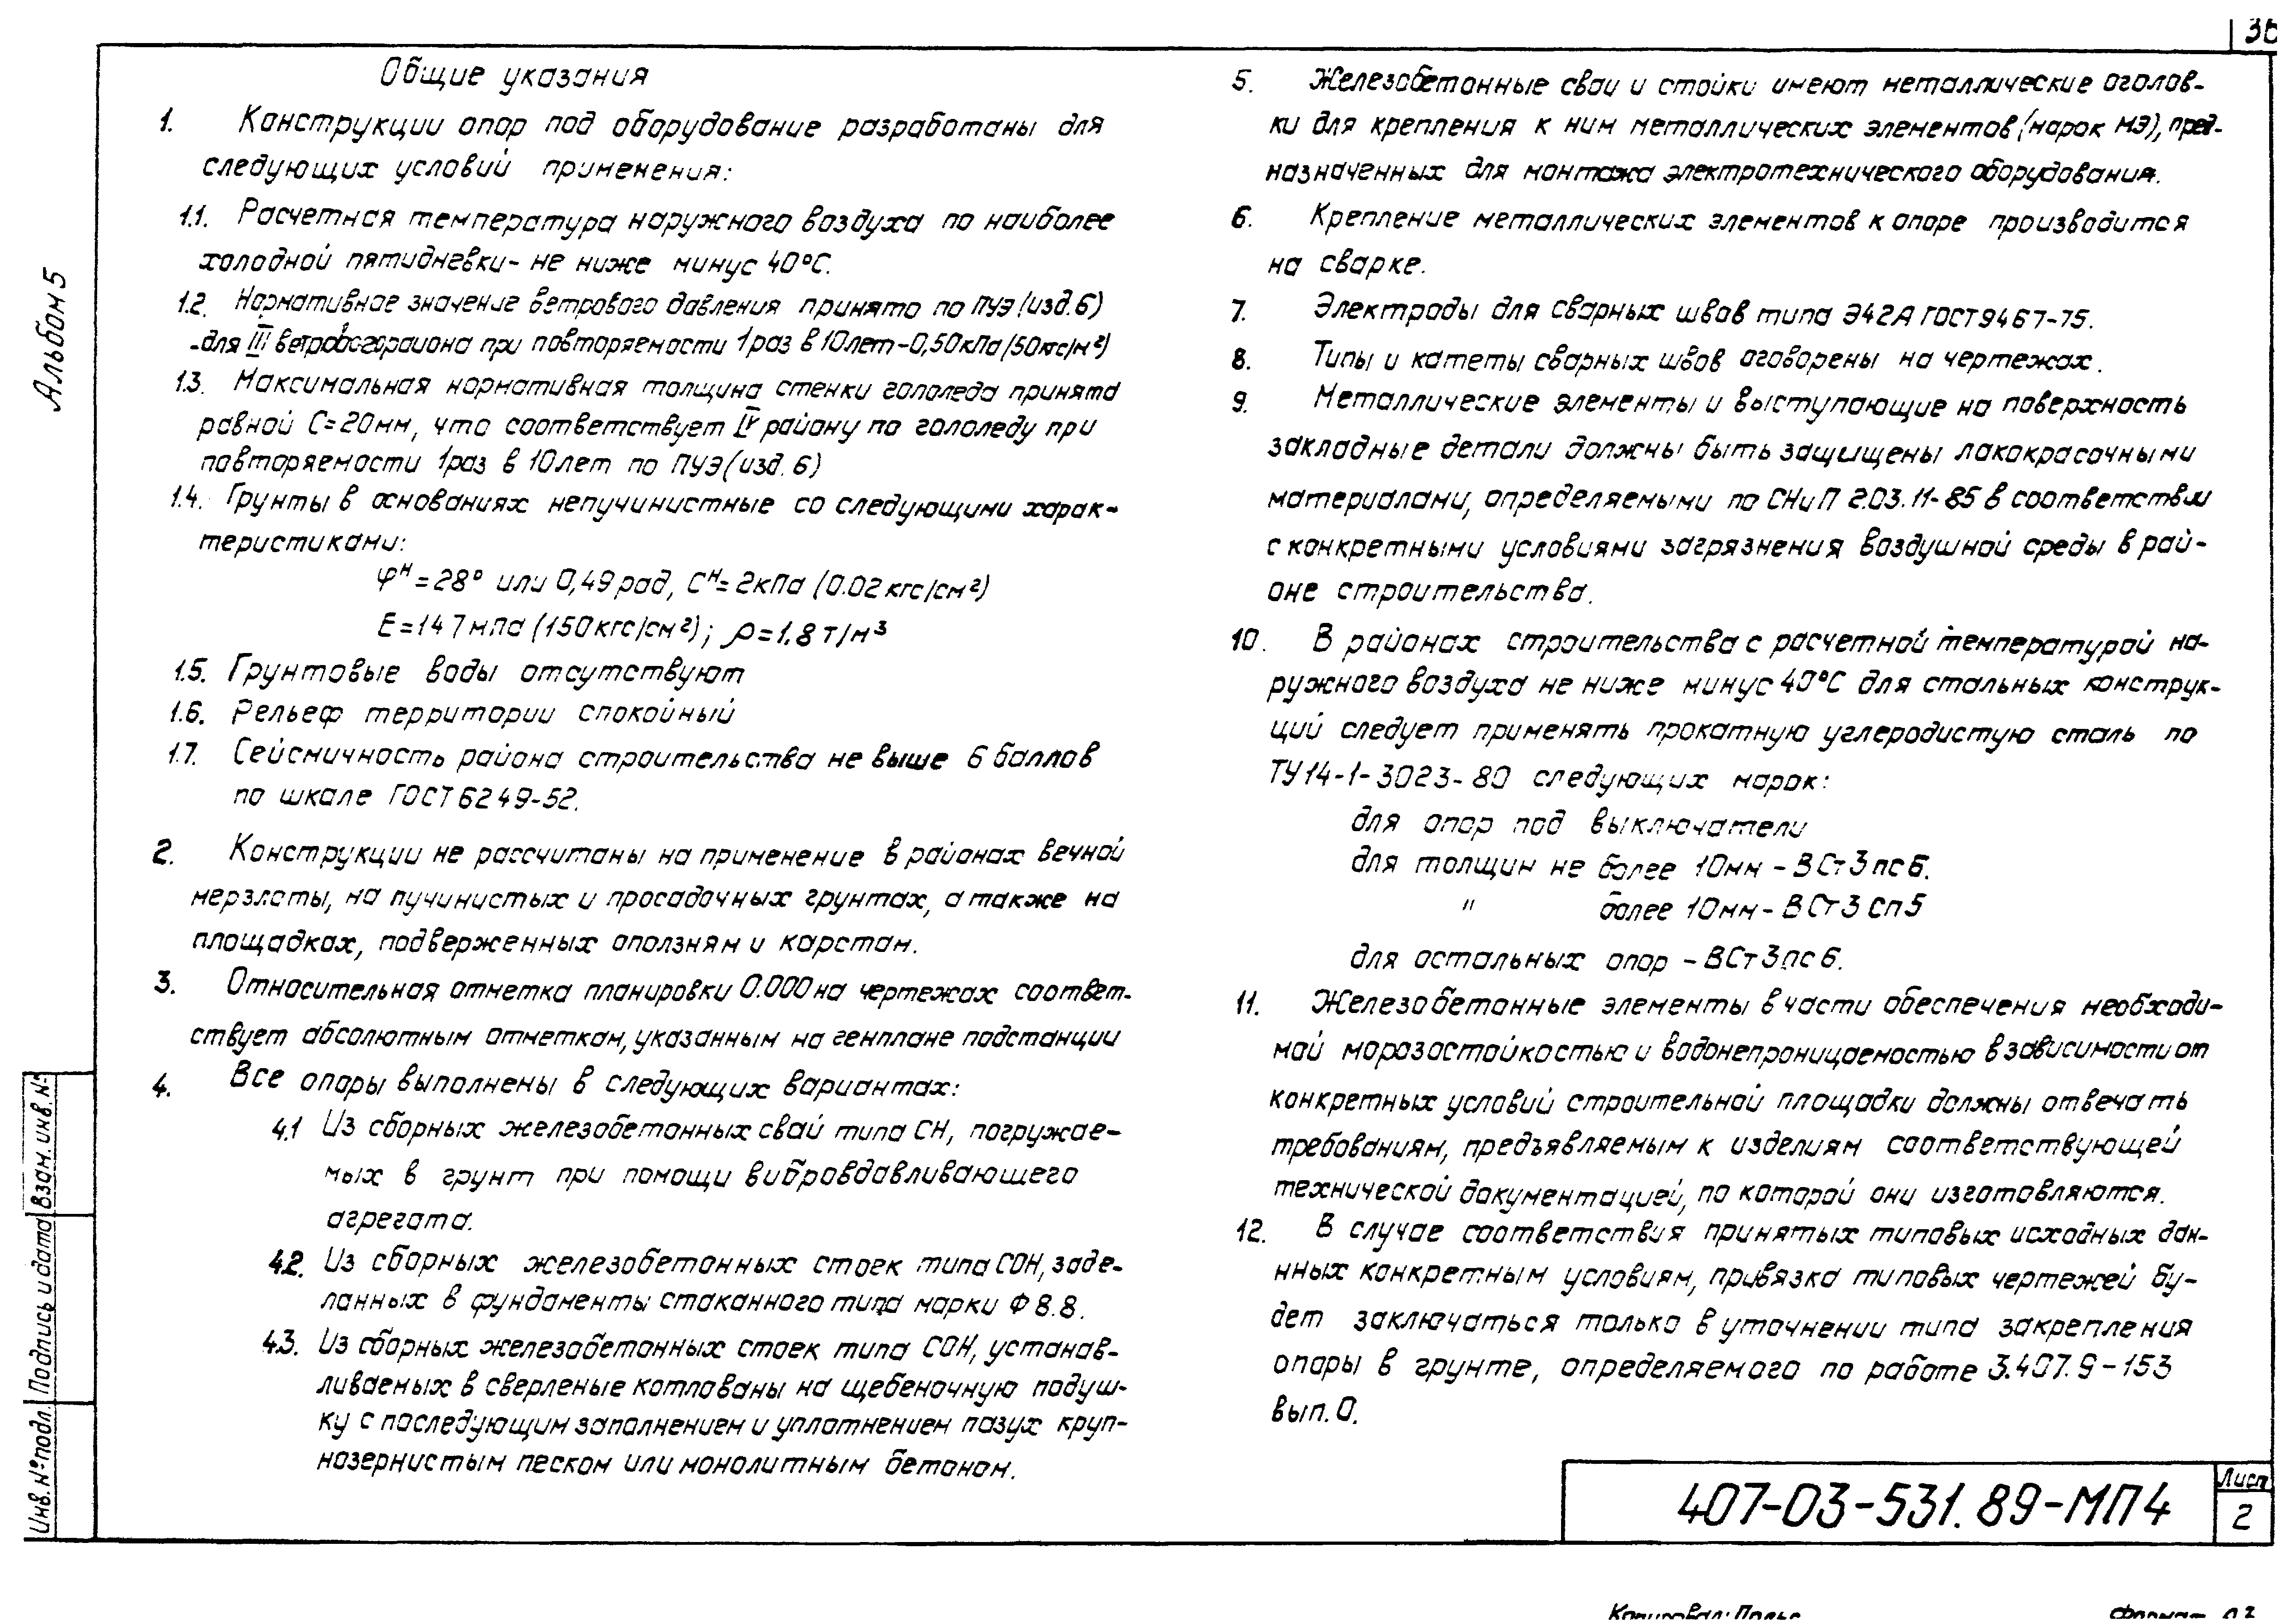 36
Альбом 5
Общие указания
1. Конструкции опор под оборудование разработаны для
следующих условий применения:
1.1. Расчетная температура наружного воздуха по наиболее
холодной пятидневки - не ниже минус 40°С.
1.2. Нормативное значение ветрового давления принято по ПУЭ (изд. 6)
для III ветрового района при повторяемости 1 раз в 10 лет - 0,50 кПа (50 кгс/м²)
1.3. Максимальная нормативная толщина стенки гололеда принята
равной С=20мм, что соответствует IV району по гололеду при
повторяемости 1 раз в 10 лет по ПУЭ (изд. 6)
1.4. Грунты в основаниях непучинистые со следующими харак-
теристиками:
φᴴ=28° или 0,49 рад, Сᴴ=2кПа (0.02 кгс/см²)
Е=147мпа (150кгс/см²); ρ=1.8 т/м³
1.5. Грунтовые воды отсутствуют
1.6. Рельеф территории спокойный
1.7. Сейсмичность района строительства не выше 6 баллов
по шкале ГОСТ 6249-52.
2. Конструкции не рассчитаны на применение в районах вечной
мерзлоты, на пучинистых и просадочных грунтах, а также на
площадках, подверженных оползням и карстам.
3. Относительная отметка планировки 0.000 на чертежах соответ-
ствует абсолютным отметкам, указанным на генплане подстанции
4. Все опоры выполнены в следующих вариантах:
4.1 Из сборных железобетонных свай типа СН, погружае-
мых в грунт при помощи вибровдавливающего
агрегата.
4.2. Из сборных железобетонных стоек типа СОН, заде-
ланных в фундаменты стаканного типа марки Ф 8.8.
4.3. Из сборных железобетонных стоек типа СОН, устанав-
ливаемых в сверленые котлованы на щебеночную подуш-
ку с последующим заполнением и уплотнением пазух круп-
нозернистым песком или монолитным бетоном.
5. Железобетонные сваи и стойки имеют металлические оголов-
ки для крепления к ним металлических элементов (марок МЭ), пред-
назначенных для монтажа электротехнического оборудования.
6. Крепление металлических элементов к опоре производится
на сварке.
7. Электроды для сварных швов типа Э42А ГОСТ 9467-75.
8. Типы и катеты сварных швов оговорены на чертежах.
9. Металлические элементы и выступающие на поверхность
закладные детали должны быть защищены лакокрасочными
материалами, определяемыми по СНиП 2.03.11-85 в соответствии
с конкретными условиями загрязнения воздушной среды в рай-
оне строительства.
10. В районах строительства с расчетной температурой на-
ружного воздуха не ниже минус 40°С для стальных конструк-
ций следует применять прокатную углеродистую сталь по
ТУ14-1-3023-80 следующих марок:
для опор под выключатели
для толщин не более 10мм - ВСт3пс6.
" более 10мм - ВСт3сп5
для остальных опор - ВСт3пс6.
11. Железобетонные элементы в части обеспечения необходи-
мой морозостойкостью и водонепроницаемостью в зависимости от
конкретных условий строительной площадки должны отвечать
требованиям, предъявляемым к изделиям соответствующей
технической документацией, по которой они изготовляются.
12. В случае соответствия принятых типовых исходных дан-
нных конкретным условиям, привязка типовых чертежей бу-
дет заключаться только в уточнении типа закрепления
опоры в грунте, определяемого по работе 3.407.9-153
вып. 0.
Инв. № подл. Подпись и дата Взам. инв. №
407-03-531.89-МП4
Лист
2
Копировал:
Формат